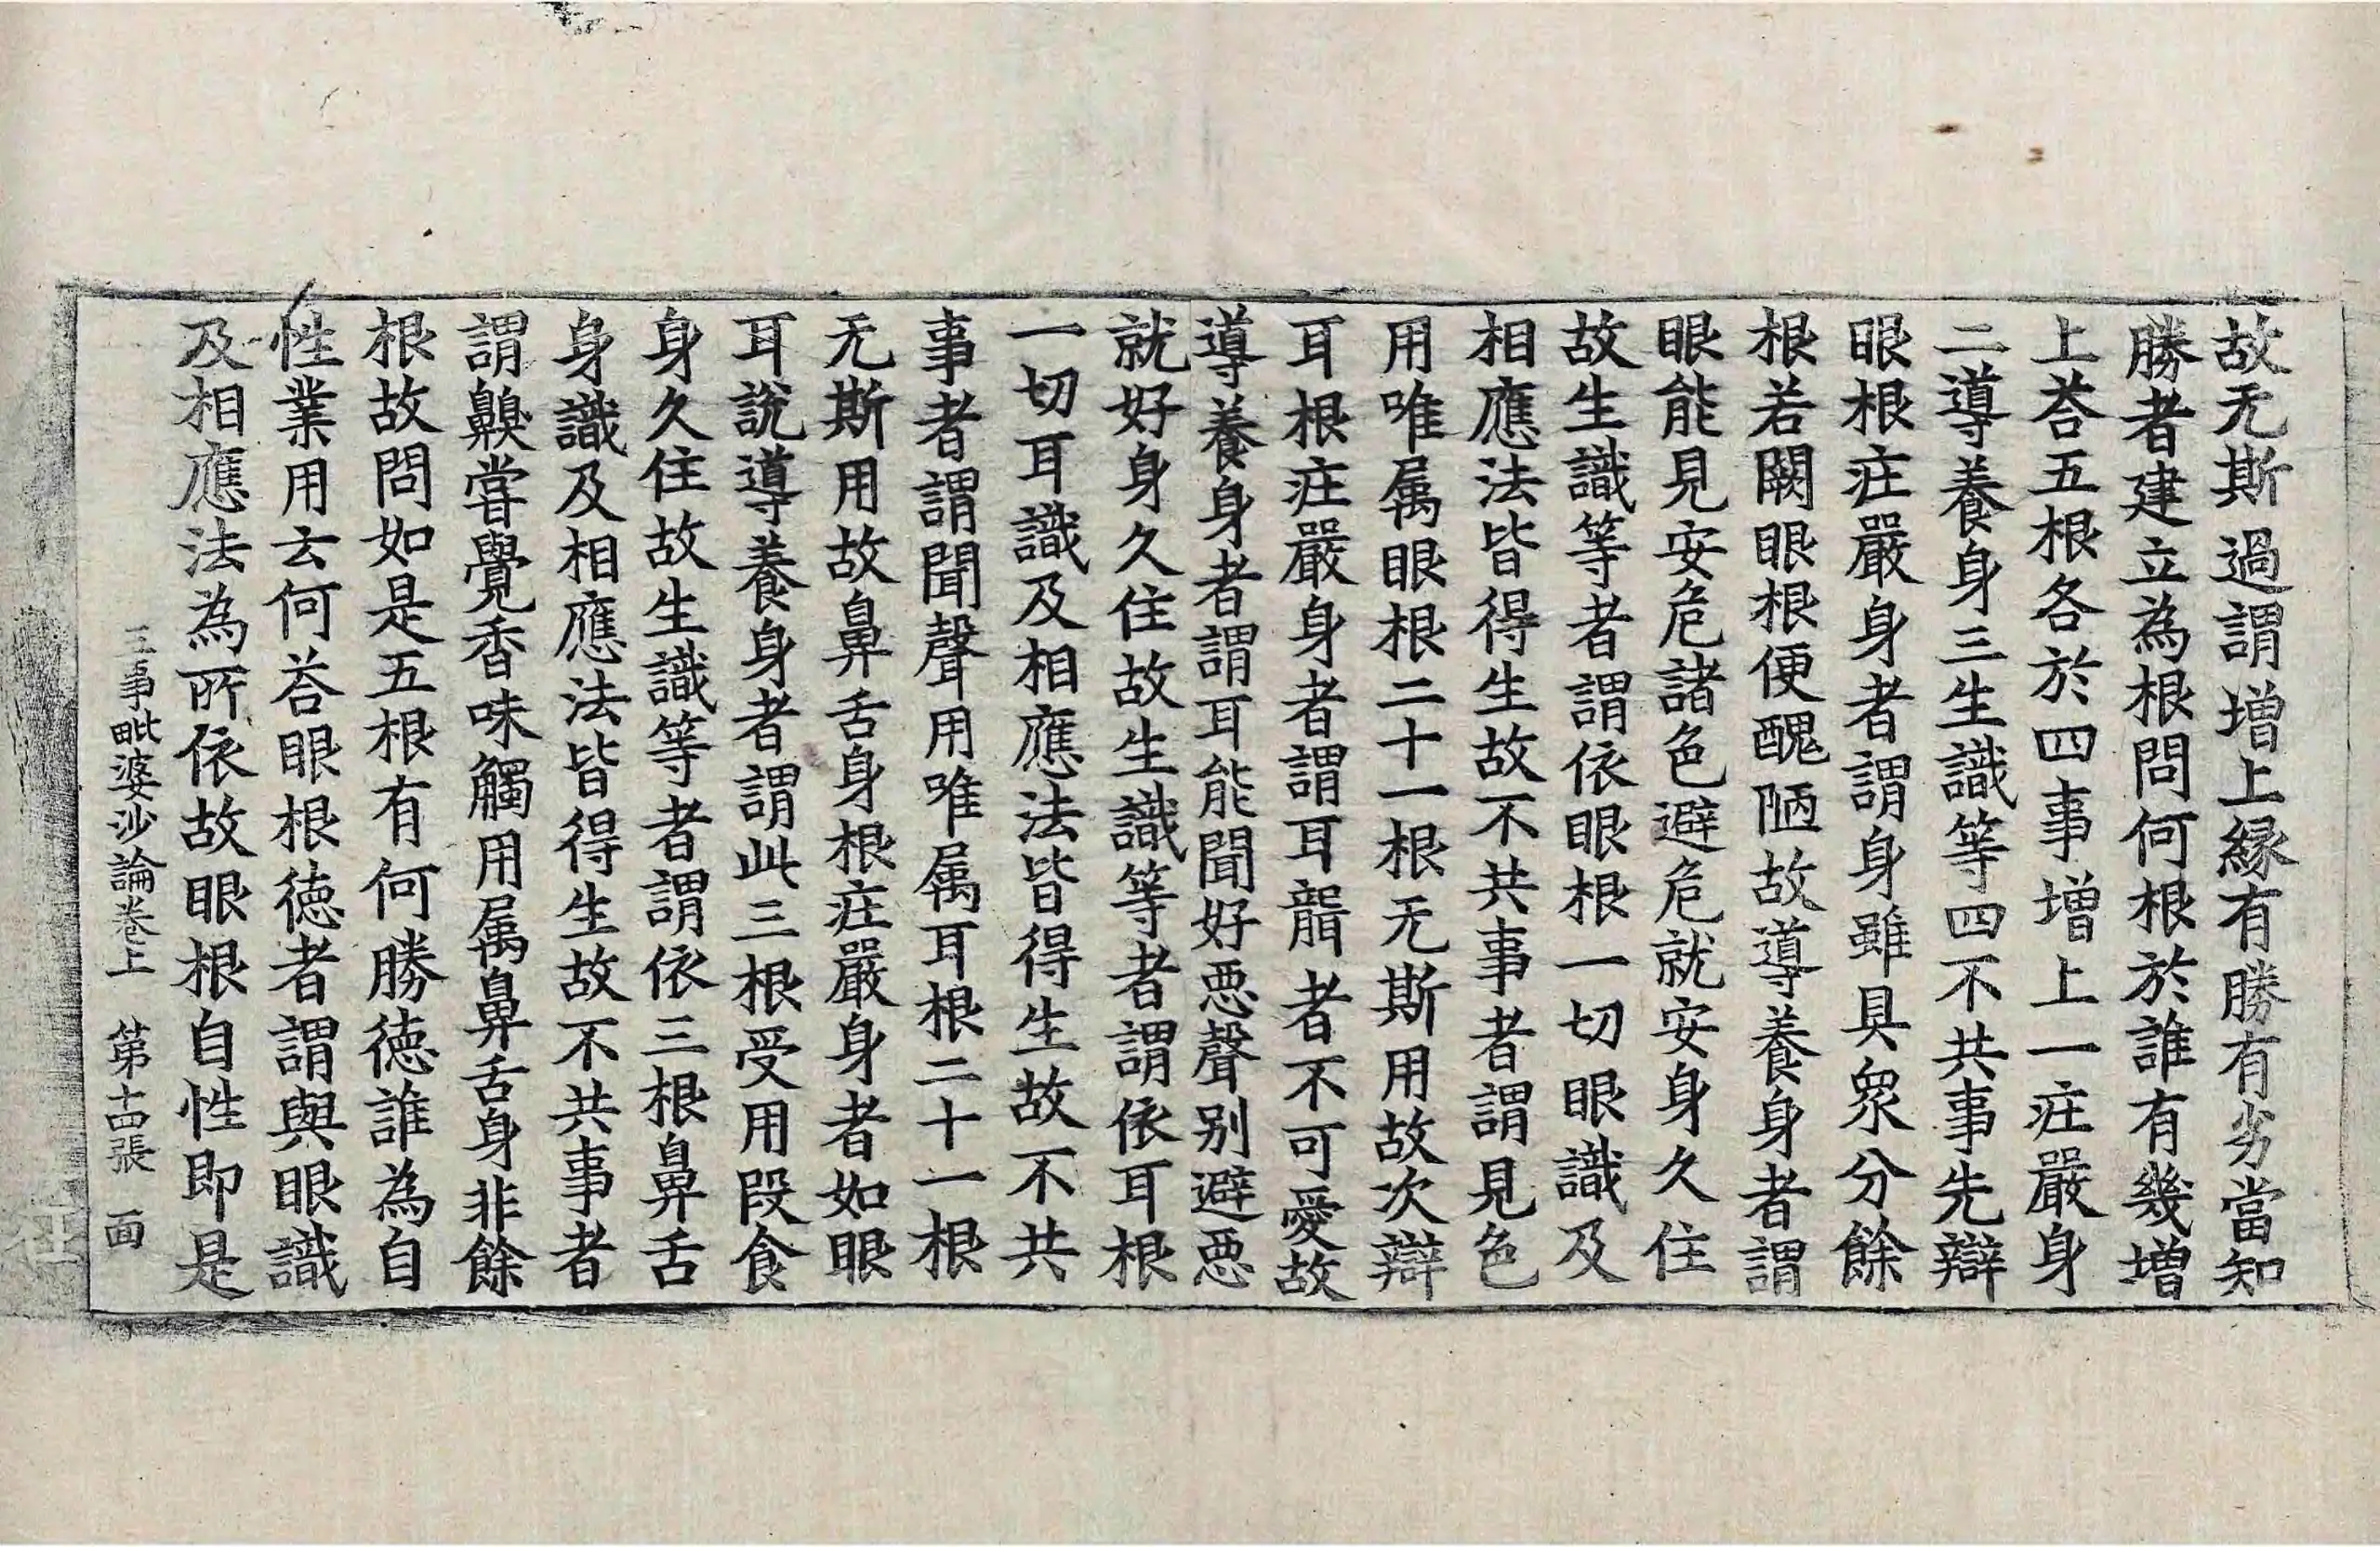 故无斯過謂增上緣有勝有劣當知
勝者建立為根問何根於誰有幾增
上荅五根各於四事增上一莊嚴身
二導養身三生識等四不共事先辯
眼根莊嚴身者謂身雖具眾分餘
根若闕眼根便醜陋故導養身者謂
眼能見安危諸色避危就安身久住
故生識等者謂依眼根一切眼識及
相應法皆得生故不共事者謂見色
用唯属眼根二十一根无斯用故次辯
耳根莊嚴身者謂耳聾者不可愛故
導養身者謂耳能聞好惡聲别避惡
就好身久住故生識等者謂依耳根
一切耳識及相應法皆得生故不共
事者謂聞聲用唯属耳根二十一根
无斯用故鼻舌身根莊嚴身者如眼
耳說導養身者謂此三根受用段食
身久住故生識等者謂依三根鼻舌
身識及相應法皆得生故不共事者
謂齅甞覺香味觸用属鼻舌身非餘
根故問如是五根有何勝德誰為自
性業用云何荅眼根德者謂與眼識
及相應法為所依故眼根自性即是
三事毗婆沙論卷上　第十四張　面